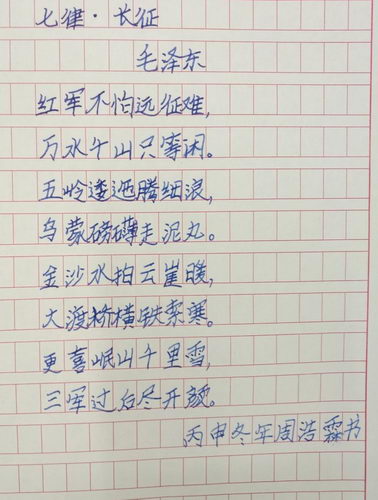 七律·长征
毛泽东
红军不怕远征难,
万水千山只等闲。
五岭逶迤腾细浪,
乌蒙磅礴走泥丸。
金沙水拍云崖暖,
大渡桥横铁索寒。
更喜岷山千里雪,
三军过后尽开颜。
丙申冬年周浩霖书